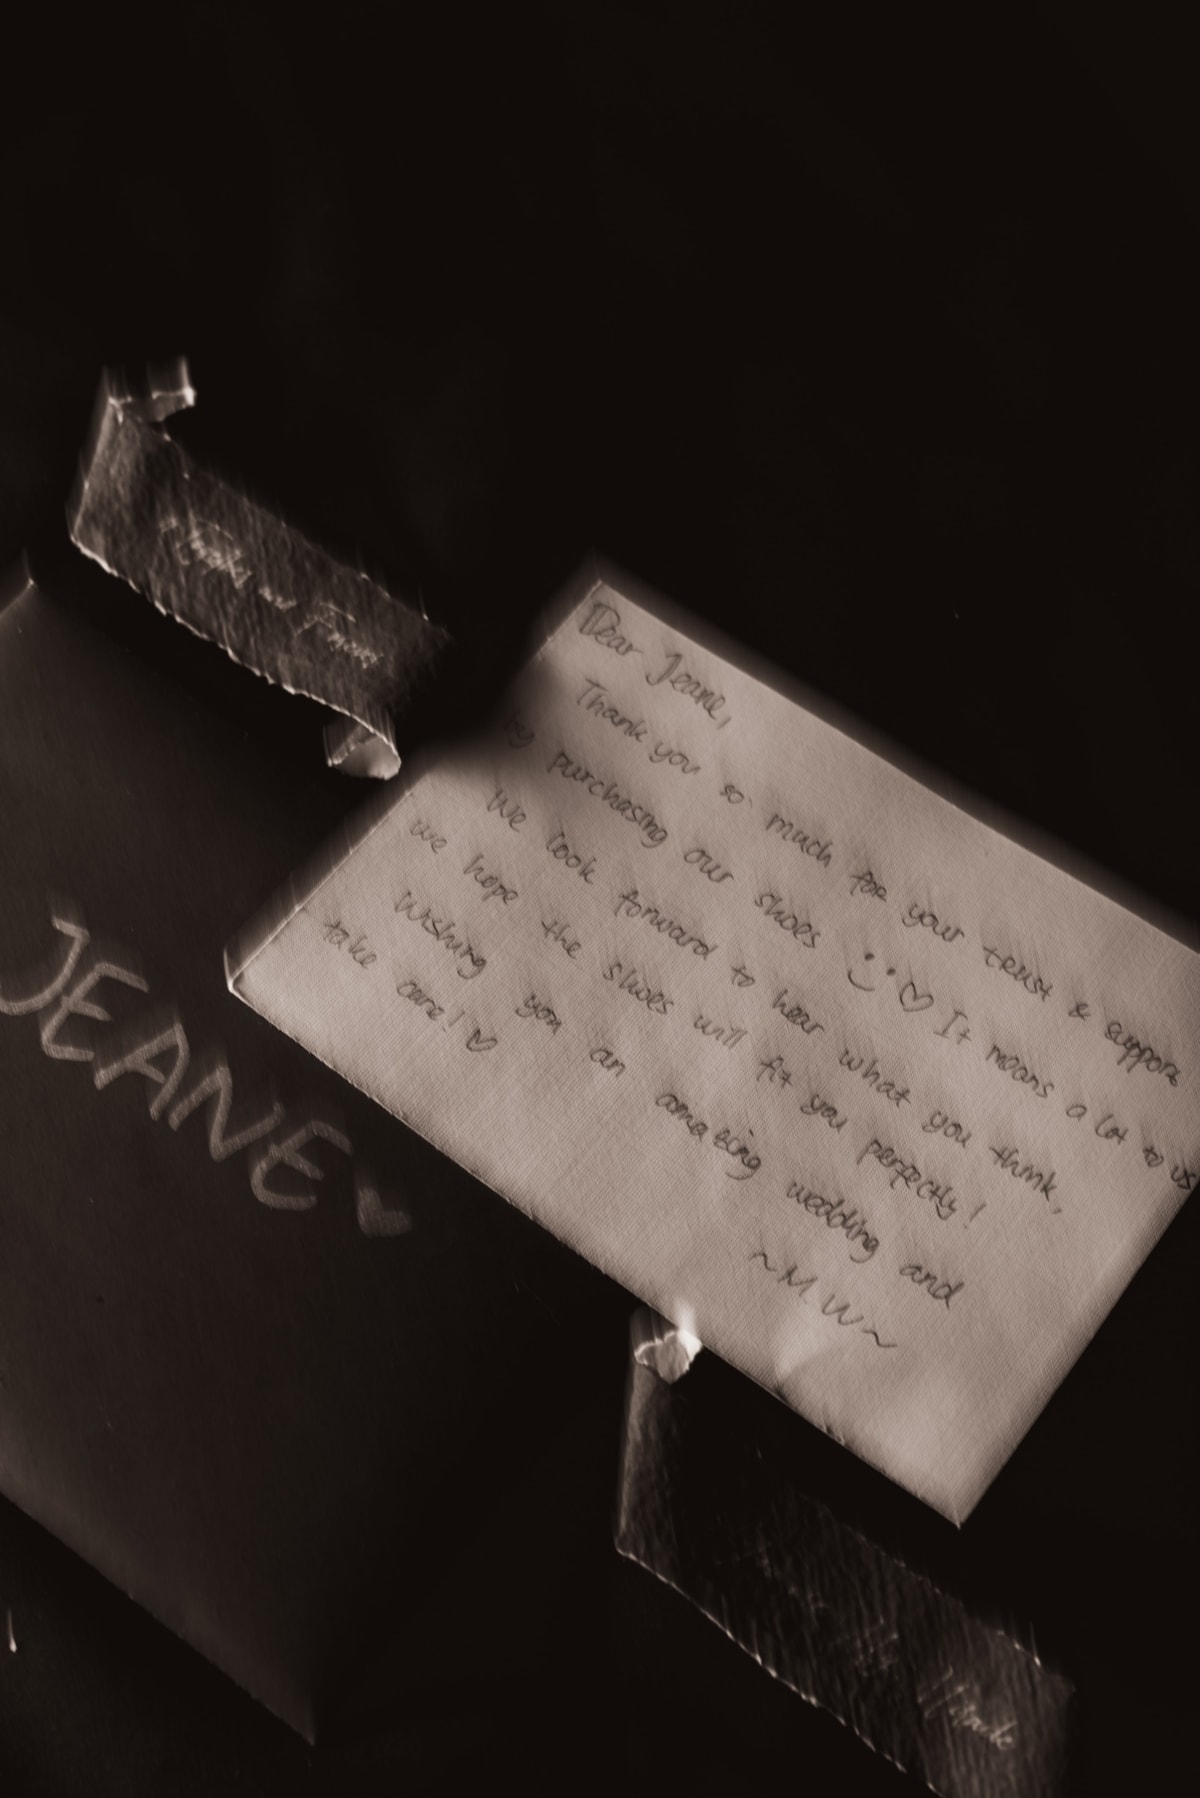 Dear Jeane,
Thank you so much for your trust & support
by purchasing our shoes :) ♡ It means a lot to us
We look forward to hear what you think,
we hope the shoes will fit you perfectly!
Wishing you an amazing wedding and
take care! ♡
~M W~
JEANE ♥